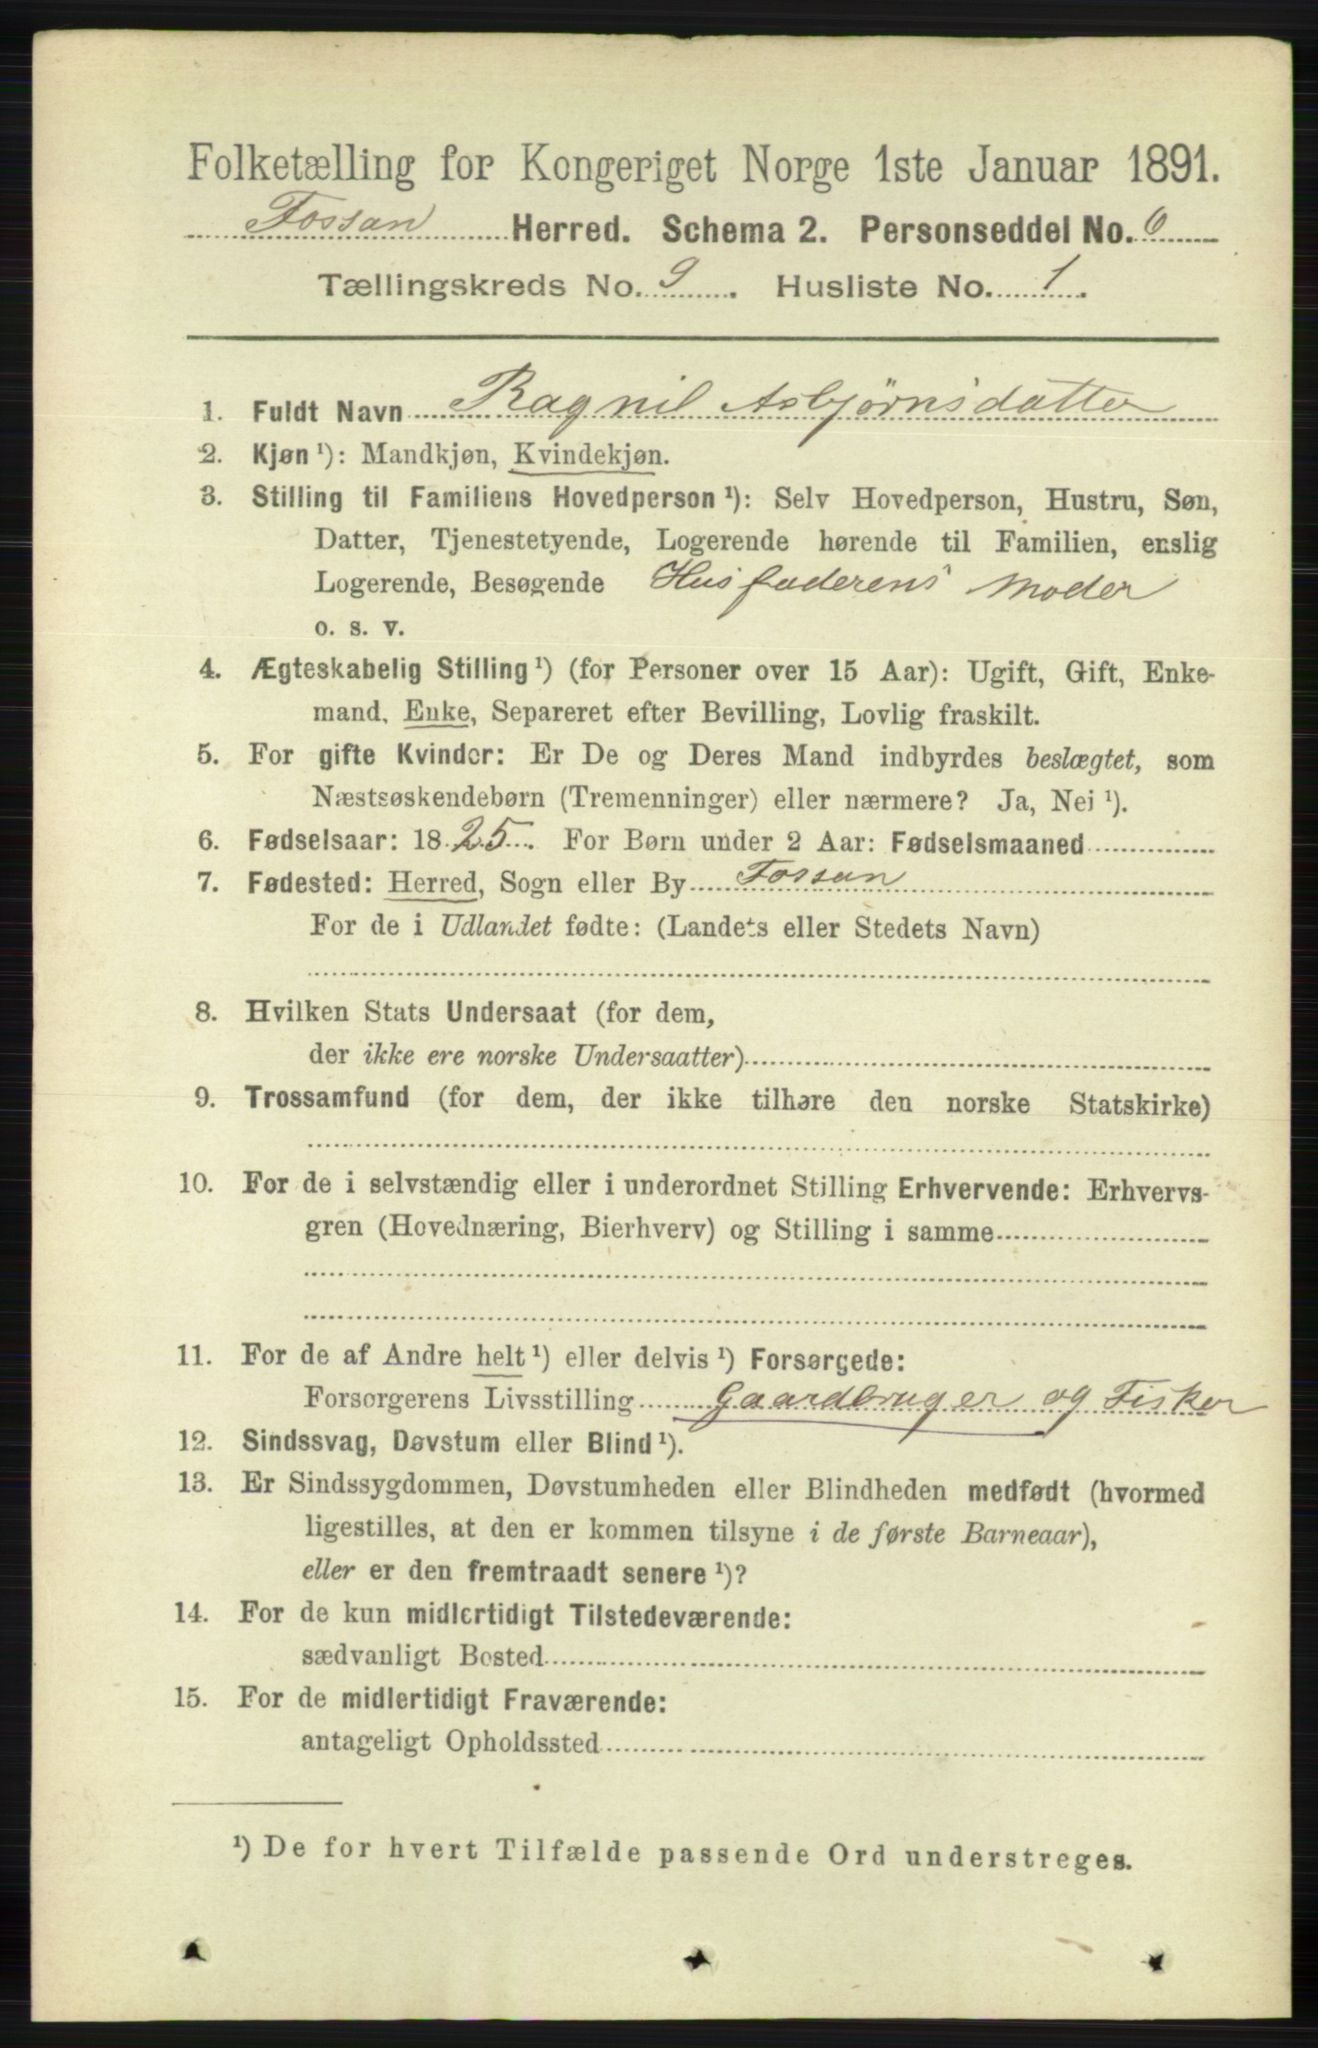 Folketælling for Kongeriget Norge 1ste Januar 1891.
Fossan Herred. Schema 2. Personseddel No. 6
Tællingskreds No. 9. Husliste No. 1.
1. Fuldt Navn Ragnil Asbjørnsdatter
2. Kjøn ¹): Mandkjøn, Kvindekjøn.
3. Stilling til Familiens Hovedperson ¹): Selv Hovedperson, Hustru, Søn,
Datter, Tjenestetyende, Logerende hørende til Familien, enslig
Logerende, Besøgende Husfaderens Moder
o. s. v.
4. Ægteskabelig Stilling ¹) (for Personer over 15 Aar): Ugift, Gift, Enke-
mand, Enke, Separeret efter Bevilling, Lovlig fraskilt.
5. For gifte Kvinder: Er De og Deres Mand indbyrdes beslægtet, som
Næstsøskendebørn (Tremenninger) eller nærmere? Ja, Nei ¹).
6. Fødselsaar: 1825. For Børn under 2 Aar: Fødselsmaaned
7. Fødested: Herred, Sogn eller By Fossan
For de i Udlandet fødte: (Landets eller Stedets Navn)
8. Hvilken Stats Undersaat (for dem,
der ikke ere norske Undersaatter)
9. Trossamfund (for dem, der ikke tilhøre den norske Statskirke)
10. For de i selvstændig eller i underordnet Stilling Erhvervende: Erhvervs-
gren (Hovednæring, Bierhverv) og Stilling i samme
11. For de af Andre helt ¹) eller delvis ¹) Forsørgede:
Forsørgerens Livsstilling Gaardbruger og Fisker
12. Sindssvag, Døvstum eller Blind ¹).
13. Er Sindssygdommen, Døvstumheden eller Blindheden medfødt (hvormed
ligestilles, at den er kommen tilsyne i de første Barneaar),
eller er den fremtraadt senere ¹)?
14. For de kun midlertidigt Tilstedeværende:
sædvanligt Bosted
15. For de midlertidigt Fraværende:
antageligt Opholdssted
¹) De for hvert Tilfælde passende Ord understreges.